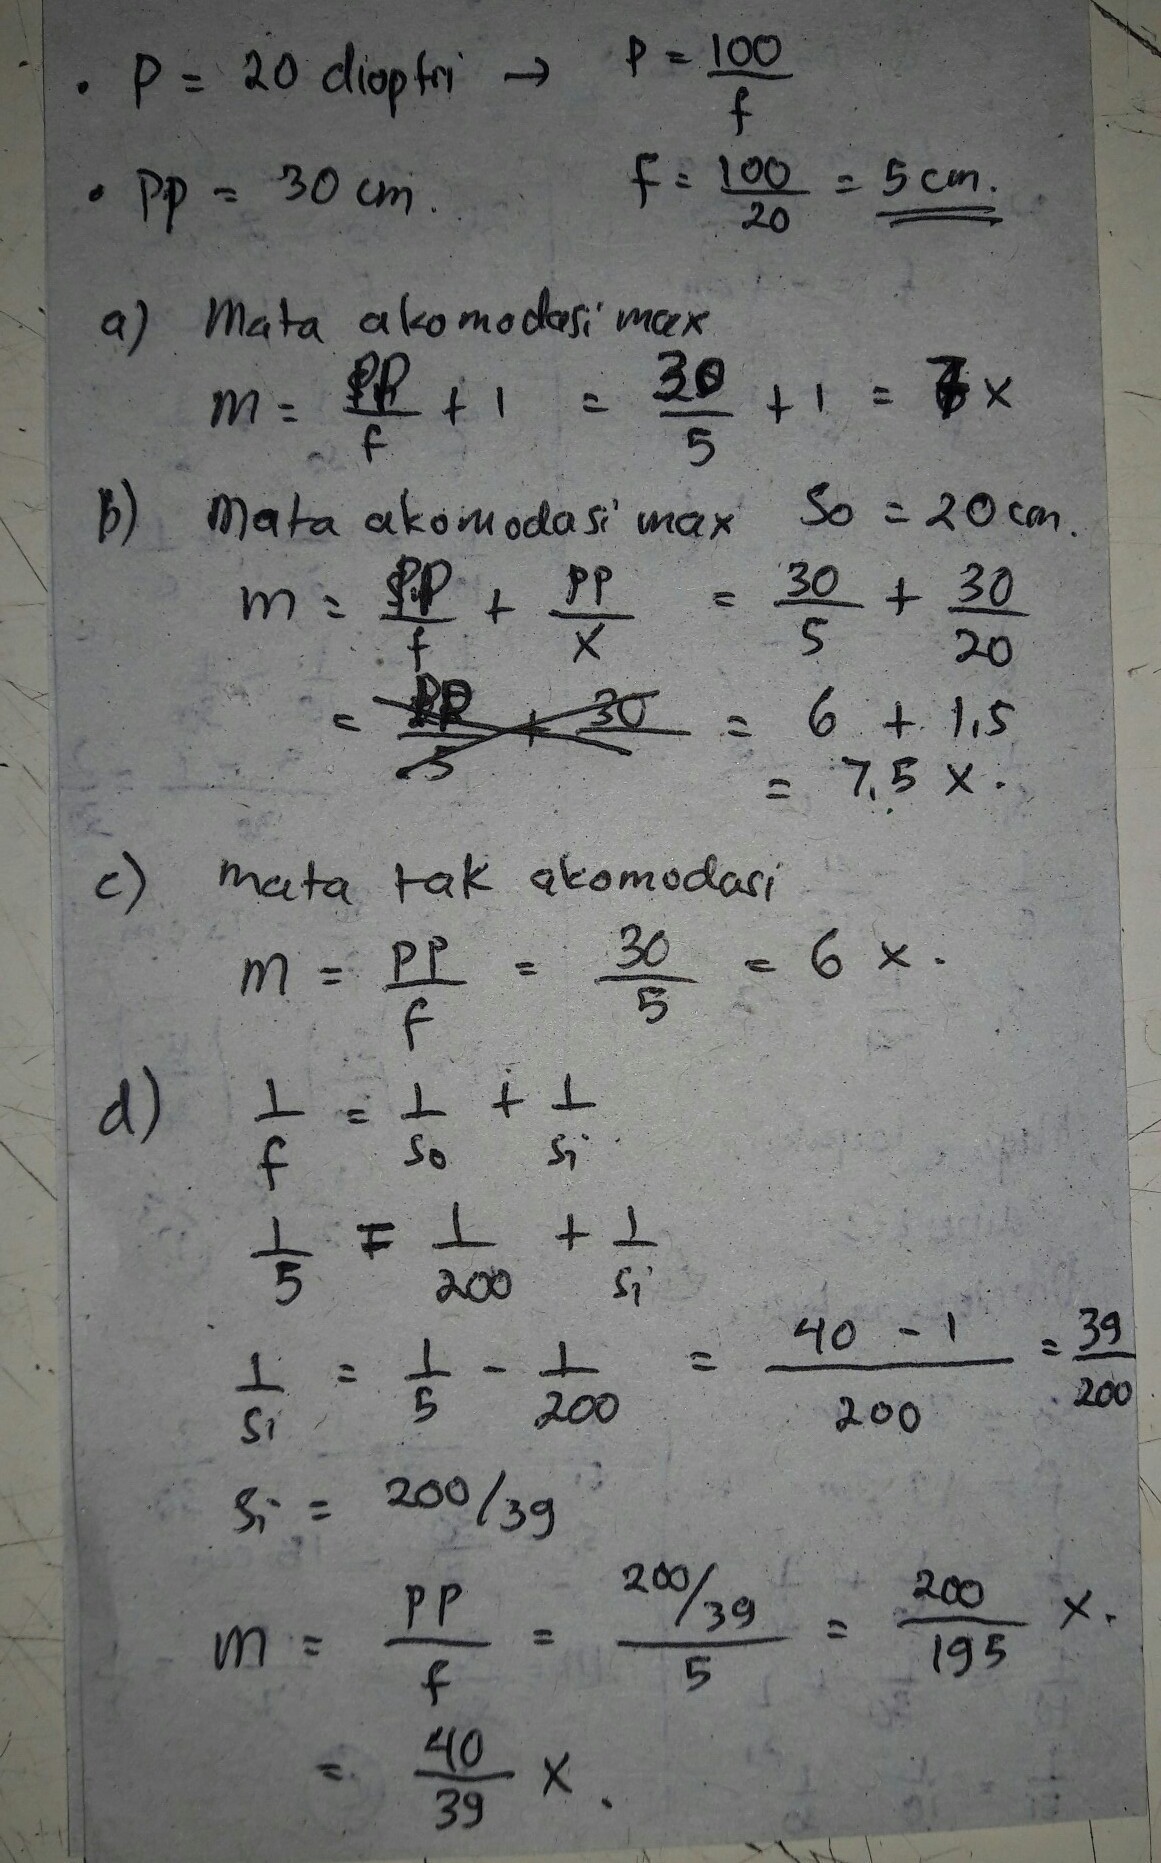 • P = 20 dioptri → P = 100/f
• PP = 30 cm. f = 100/20 = 5 cm.
a) Mata akomodasi max
m = PP/f + 1 = 30/5 + 1 = 7 x
b) Mata akomodasi max So = 20 cm.
m = PP/f + PP/x = 30/5 + 30/20
= PP/5 + 30 = 6 + 1,5
= 7,5 x.
c) mata tak akomodasi
m = PP/f = 30/5 = 6 x.
d) 1/f = 1/So + 1/Si
1/5 = 1/200 + 1/Si
1/Si = 1/5 - 1/200 = 40 - 1/200 = 39/200
Si = 200/39
m = PP/f = 200/39/5 = 200/195 x.
= 40/39 x.